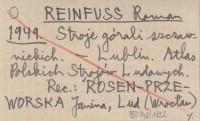 REINFUSS Roman
1949. Stroje górali szczaw-
nickich. — Lublin. Atlas
Polskich Strojów Ludowych.
Rec.: ROSEN-PRZE-
WORSKA Janina, Lud (Wrocław)